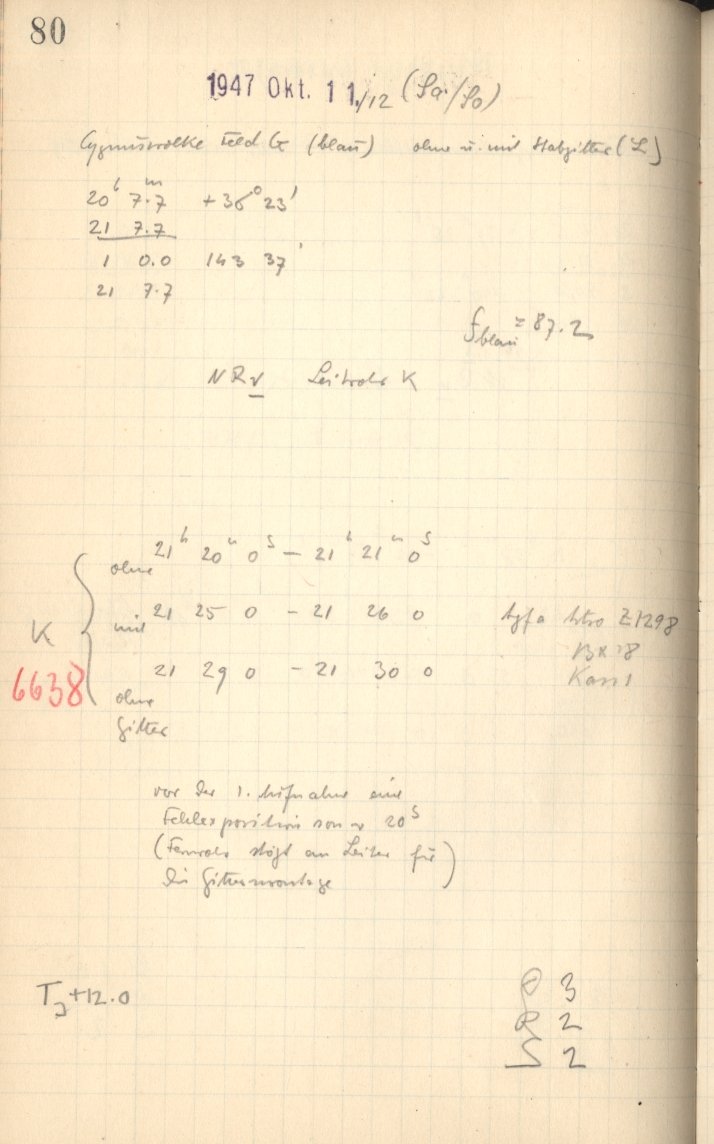 80
1947 Okt. 11./12 (Sa/So)
Cygnuswolke Feld G (blau) ohne u. mit Stabgitter (L)
20h 7.7m +36° 23'
21 7.7
1 0.0 143 37'
21 7.7
f blau = 87.2
NRr Leitrohr K
ohne 21h 20m 0s – 21h 21m 0s
mit 21 25 0 – 21 26 0
21 29 0 – 21 30 0
ohne
Gitter
K
6638
Agfa Astro Z1298
Kass 1
vor der 1. Aufnahme eine
Fehlexposition von ~ 20s
(Fernrohr stößt an Leiter für
die Gittermontage)
TJ +12.0
3
R 2
S 2